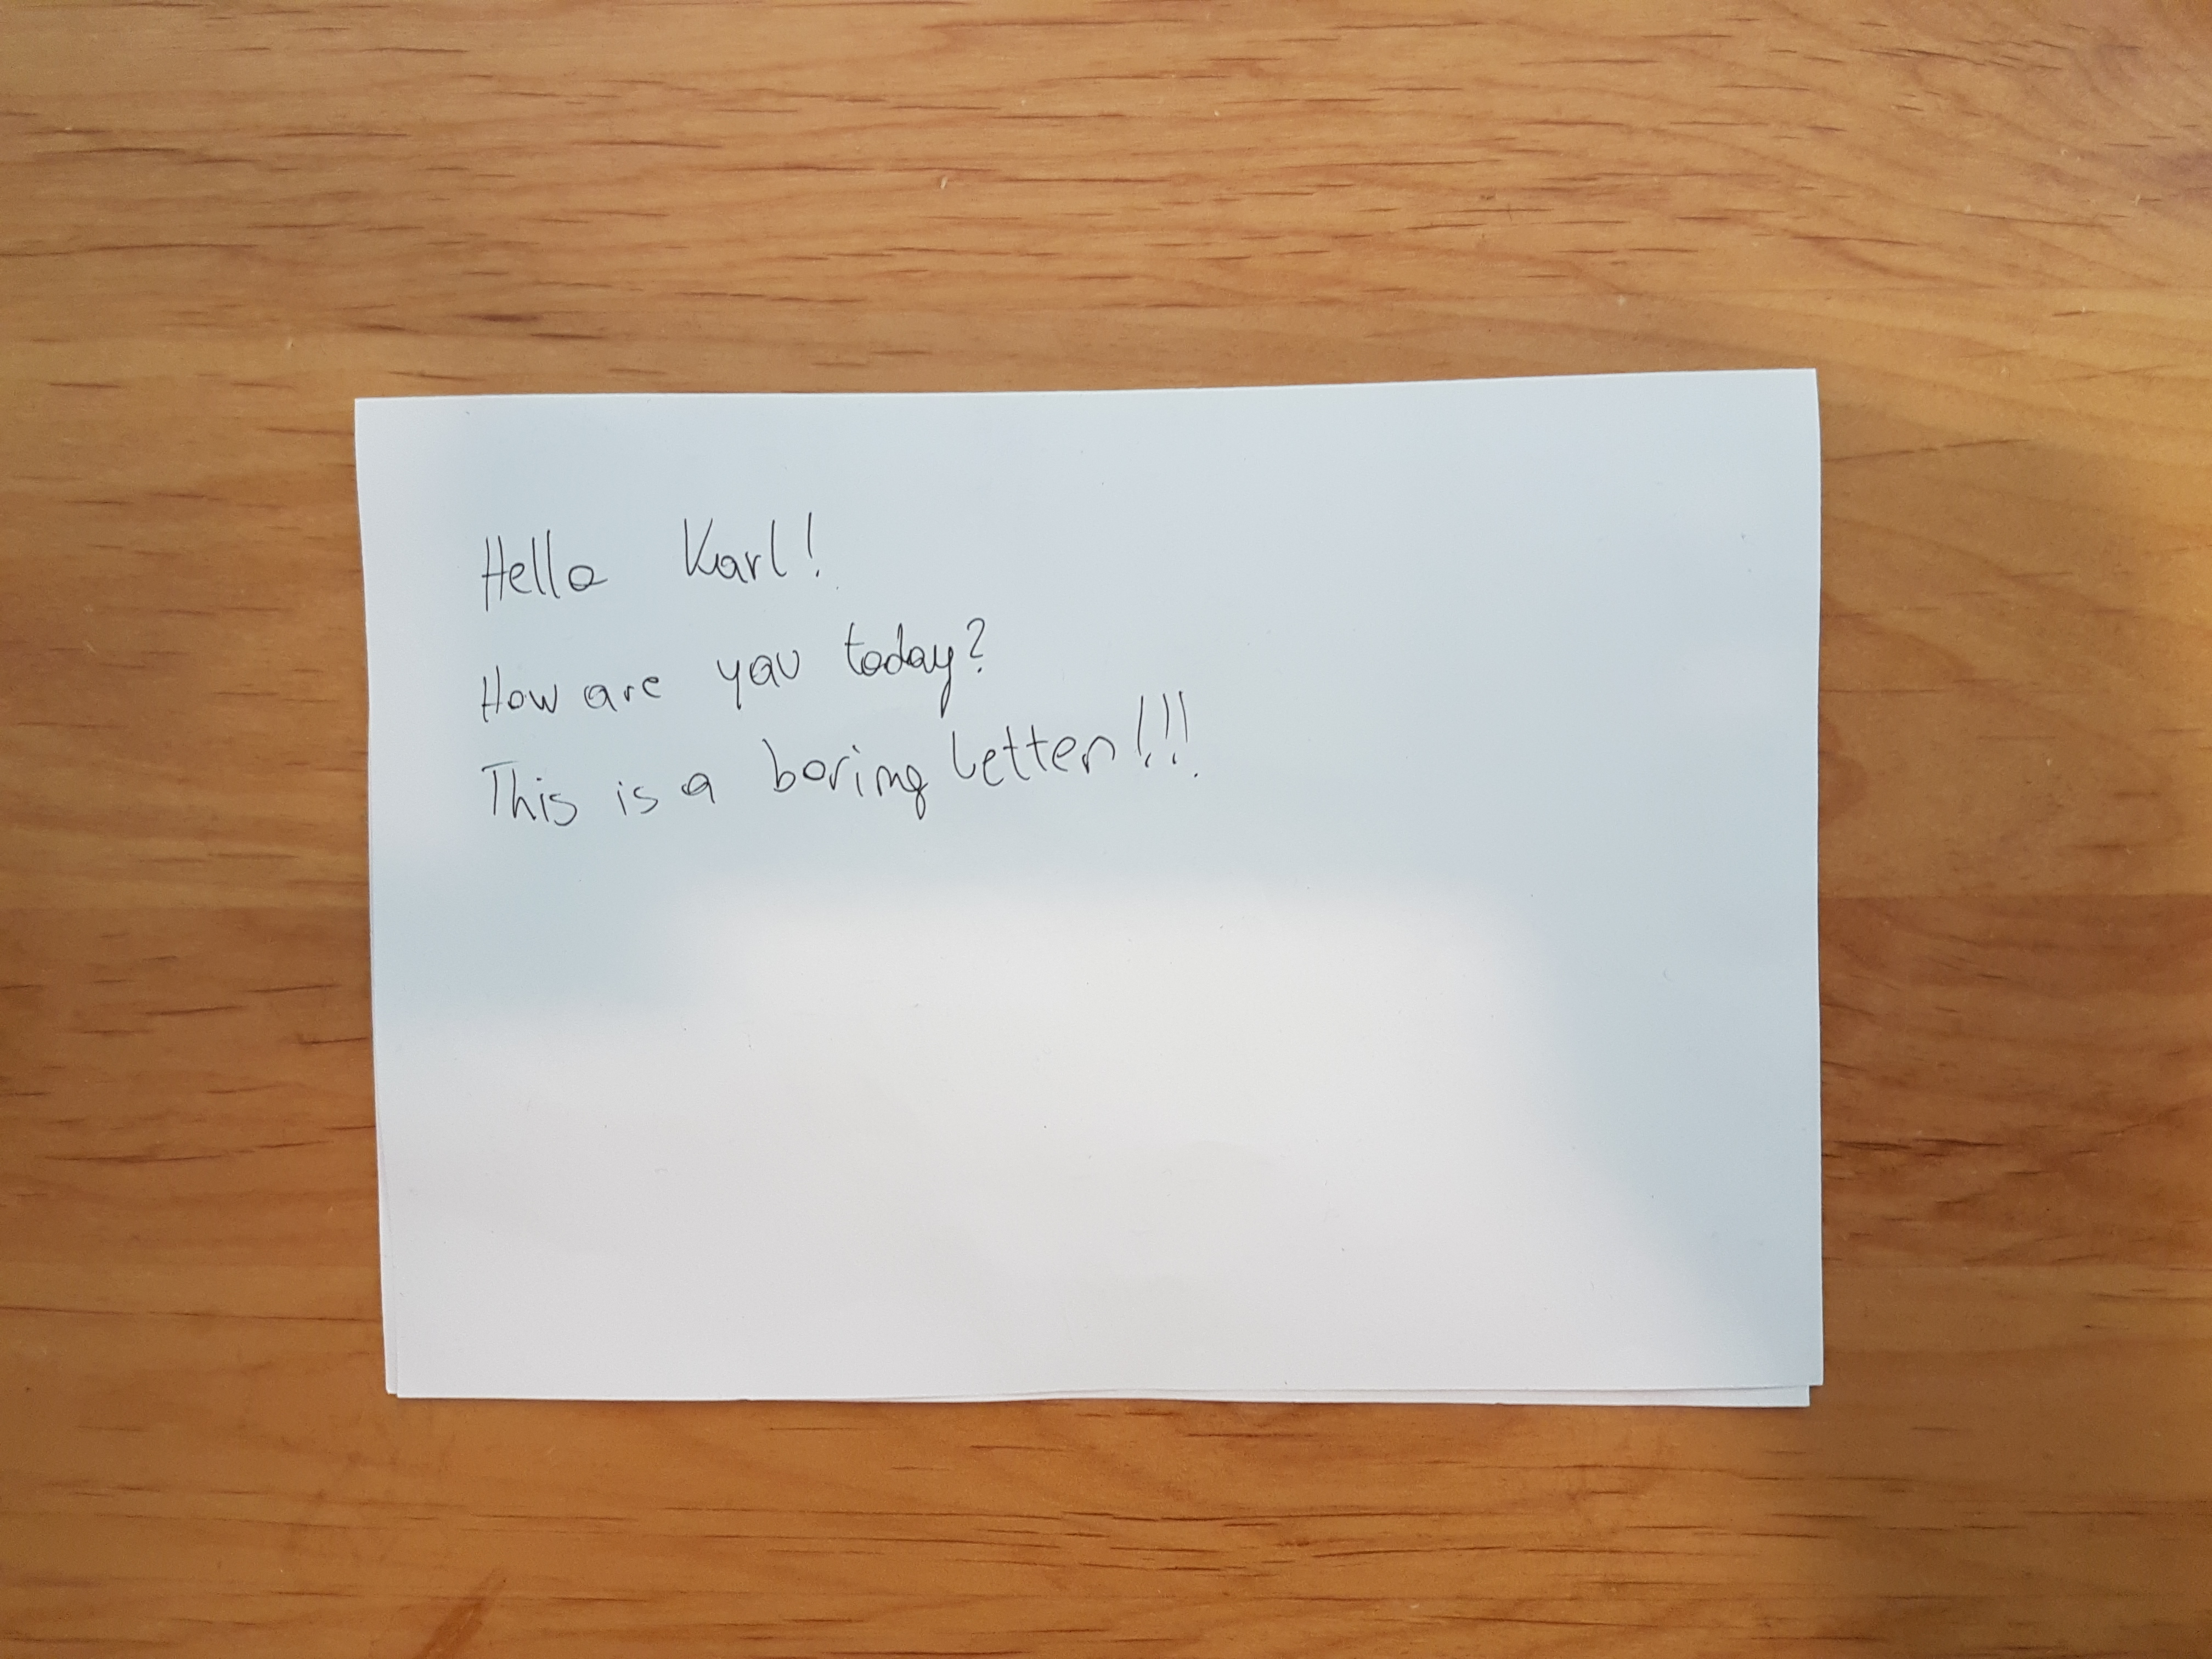 Hello Karl!
How are you today?
This is a boring letter!!!